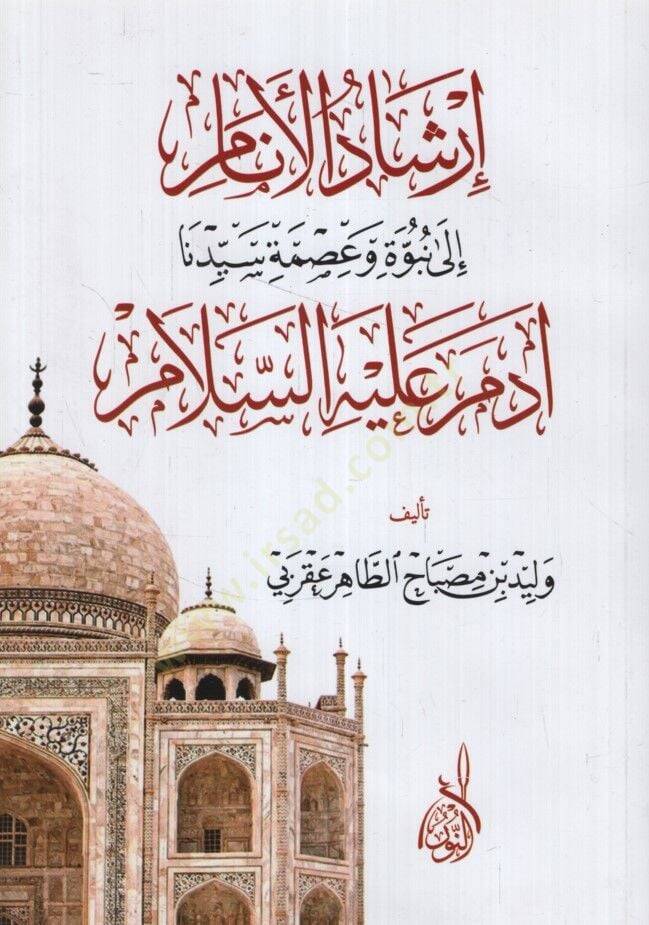 إِرْشَادُ الأَنَامِ
إِلَىٰ نُبُوَّةِ وَعِصْمَةِ سَيِّدِنَا
آدَمَ عَلَيْهِ السَّلَامْ
تأليف
وَلِيد بْن مِصْبَاح الطَّاهِر عَقْرَبِي
النُّور
www.irsad.com